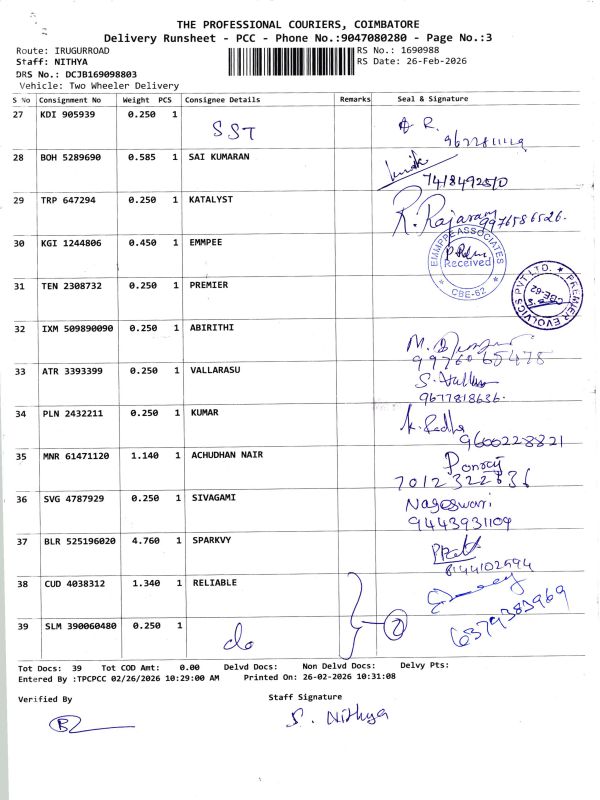 THE PROFESSIONAL COURIERS, COIMBATORE
Delivery Runsheet - PCC - Phone No.:9047080280 - Page No.:3
Route: IRUGURROAD RS No.: 1690988
Staff: NITHYA RS Date: 26-Feb-2026
DRS No.: DCJB169098803
Vehicle: Two Wheeler Delivery
S No Consignment No Weight PCS Consignee Details Remarks Seal & Signature
27 KDI 905939 0.250 1 SST R.
28 BOH 5289690 0.585 1 SAI KUMARAN
29 TRP 647294 0.250 1 KATALYST R. Rajaram 9976586526.
30 KGI 1244806 0.450 1 EMMPEE EMMPEE ASSOCIATES Received CBE-62
31 TEN 2308732 0.250 1 PREMIER PREMIER EVOLVICS PVT LTD. CBE-62
32 IXM 509890090 0.250 1 ABIRITHI M. 9976065475
33 ATR 3393399 0.250 1 VALLARASU S. 9677818636.
34 PLN 2432211 0.250 1 KUMAR K. Radha 9600228821
35 MNR 61471120 1.140 1 ACHUDHAN NAIR Ponraj 7012322836
36 SVG 4787929 0.250 1 SIVAGAMI Nageswari 9443931109
37 BLR 525196020 4.760 1 SPARKVY 8144102594
38 CUD 4038312 1.340 1 RELIABLE
39 SLM 390060480 0.250 1 do 2 6379383969
Tot Docs: 39 Tot COD Amt: 0.00 Delvd Docs: Non Delvd Docs: Delvy Pts:
Entered By :TPCPCC 02/26/2026 10:29:00 AM Printed On: 26-02-2026 10:31:08
Verified By Staff Signature
S. Nithya